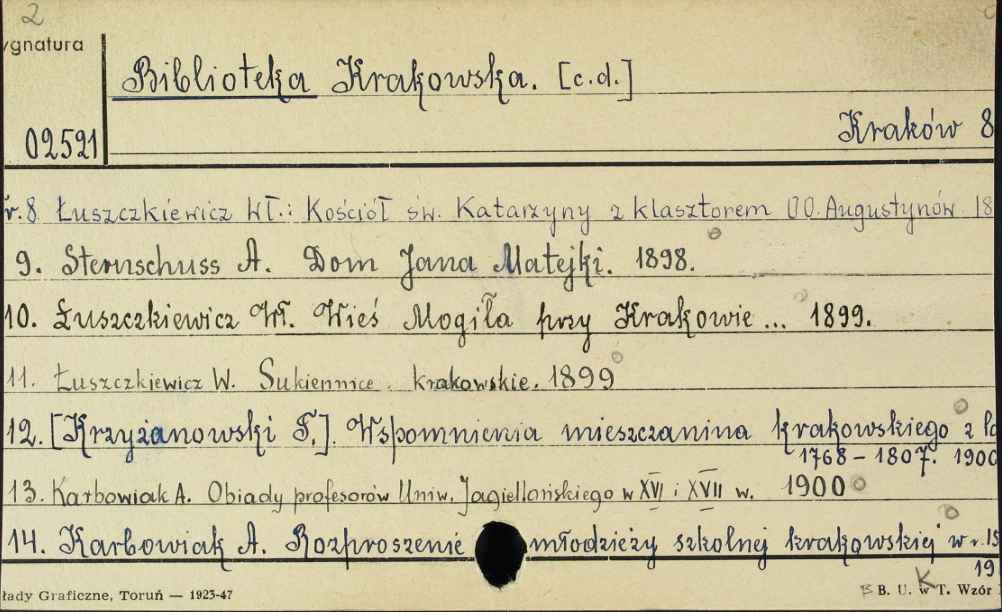 2
ygnatura
Biblioteka Krakowska. [c.d.]
02521
Kraków 8
r.8 Łuszczkiewicz Wł.: Kościół św. Katarzyny z klasztorem OO. Augustynów. 18
9. Sternschuss A. Dom Jana Matejki. 1898.
10. Łuszczkiewicz Wł. Wieś Mogiła przy Krakowie ... 1899.
11. Łuszczkiewicz W. Sukiennice krakowskie. 1899
12. [Krzyżanowski F.]. Wspomnienia mieszczanina krakowskiego z la
1768 - 1807. 1900
13. Karbowiak A. Obiady profesorów Uniw. Jagiellońskiego w XVI i XVII w. 1900
14. Karbowiak A. Rozproszenie młodzieży szkolnej krakowskiej w r. 15
19
łady Graficzne, Toruń — 1923-47
B. U. w T. Wzór
K